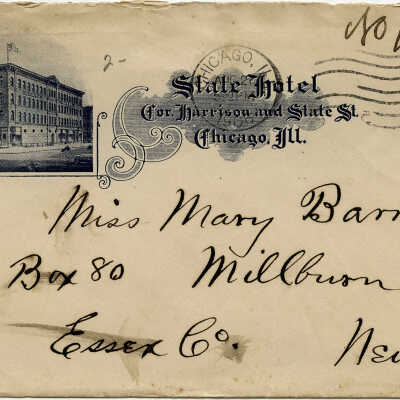 No
2-
CHICAGO, I
State Hotel
Cor. Harrison and State St.
Chicago, Ill.
Miss Mary Barr
Box 80 Millburn
Essex Co. Ne